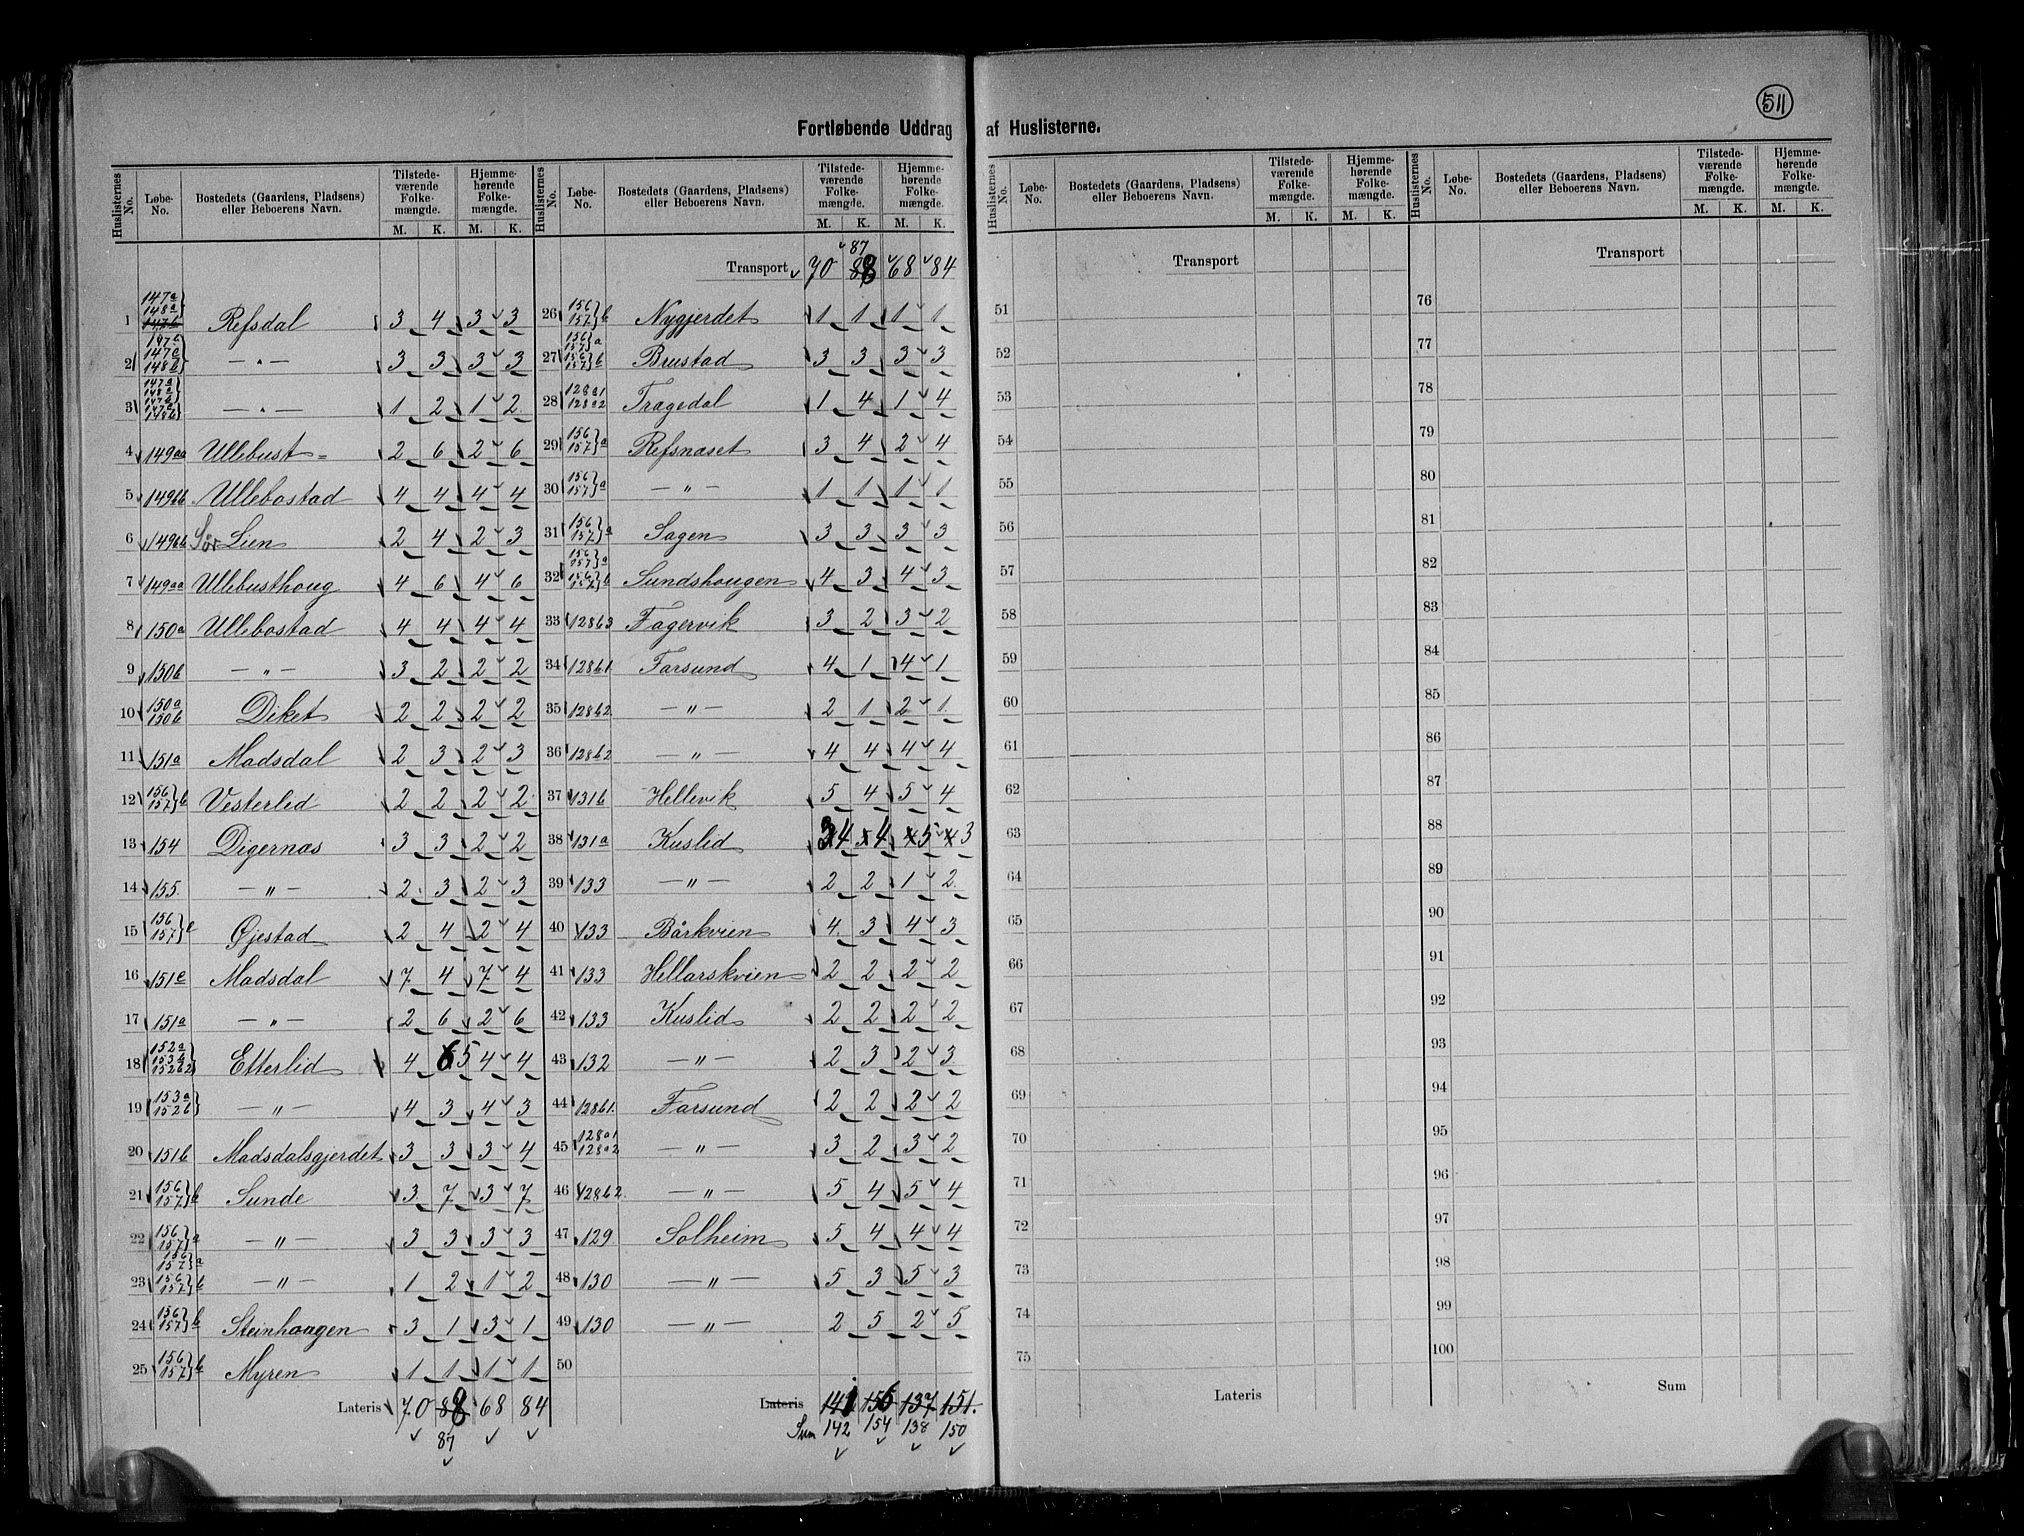 511
Fortløbende Uddrag af Huslisterne.
Huslisternes No. Løbe-No. Bostedets (Gaardens, Pladsens) eller Beboerens Navn. Tilstede-værende Folke-mængde. M. K. Hjemme-hørende Folke-mængde. M. K.
1 147a 148a 147b Refsdal 3 4 3 3
2 147b 147c 148b — " — 3 3 3 3
3 147a 148a 147b 147c 148b — " — 1 2 1 2
4 149aa Ullebust 2 6 2 6
5 149bb Ullebostad 4 4 4 4
6 149bb Sør Lien 2 4 2 3
7 149aa Ullebusthoug 4 6 4 6
8 150a Ullebostad 4 4 4 4
9 150b — " — 3 2 2 2
10 150a 150b Diket 2 2 2 2
11 151a Madsdal 2 3 2 3
12 156 157 b Vesterlid 2 2 2 2
13 154 Digernæs 3 3 2 2
14 155. — " — 2 3 2 3
15 156 157 b Øjestad 2 4 2 4
16 151c Madsdal 7 4 7 4
17 151a — " — 2 6 2 6
18 152a 153b 152b2 Etterlid 4 6 5 4 4
19 153a 152b — " — 4 3 4 3
20 151b Madsdalsgjerdet 3 3 3 4
21 156 157 b Sunde 3 7 3 7
22 156 157 a — " — 3 3 3 3
23 156 157 a 156 157 b — " — 1 2 1 2
24 156 157 b Steinhaugen 3 1 3 1
25 156 157 b Myren 1 1 1 1
Lateris 70 88 68 84
87
Huslisternes No. Løbe-No. Bostedets (Gaardens, Pladsens) eller Beboerens Navn. Tilstede-værende Folke-mængde. M. K. Hjemme-hørende Folke-mængde. M. K.
87
Transport 70 88 68 84
26 156 157 b Nygjerdet 1 1 1 1
27 156 157 a 156 157 b Brustad 3 3 3 3
28 128a1 128a2 Tragedal 1 4 1 4
29 156 157 a Refsnæset 3 4 2 4
30 156 157 a — " — 1 1 1 1
31 156 157 a Sagen 3 3 3 3
32 156 157 a 156 157 b Sundshaugen 4 3 4 3
33 128b3 Fagervik 3 2 3 2
34 128b1 Farsund 4 1 4 1
35 128b2 — " — 2 1 2 1
36 128b2 — " — 4 4 4 4
37 131b Hellevik 5 4 5 4
38 131a Kuslid 4 4 5 3
39 133 — " — 2 2 1 2
40 133 Bårkvien 4 3 4 3
41 133 Hellarskvien 2 2 2 2
42 133 Kuslid 2 2 2 2
43 132 — " — 2 3 2 3
44 128b1. Farsund 2 2 2 2
45 128a1 128a2 — " — 3 2 3 2
46 128b2. — " — 5 4 5 4
47 129 Solheim 5 4 4 4
48 130 — " — 5 3 5 3
49 130 — " — 2 5 2 5
50
Lateris 141 156 137 151.
Sum 142 154 138 150
Huslisternes No. Løbe-No. Bostedets (Gaardens, Pladsens) eller Beboerens Navn. Tilstede-værende Folke-mængde. M. K. Hjemme-hørende Folke-mængde. M. K.
Transport
51
52
53
54
55
56
57
58
59
60
61
62
63
64
65
66
67
68
69
70
71
72
73
74
75
Lateris
Huslisternes No. Løbe-No. Bostedets (Gaardens, Pladsens) eller Beboerens Navn. Tilstede-værende Folke-mængde. M. K. Hjemme-hørende Folke-mængde. M. K.
Transport
76
77
78
79
80
81
82
83
84
85
86
87
88
89
90
91
92
93
94
95
96
97
98
99
100
Sum